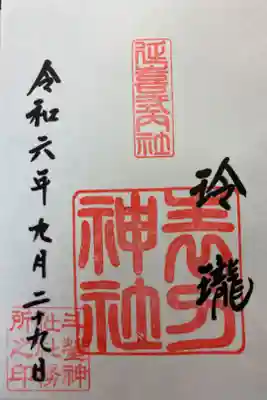 延喜式内社
玲瓏
表刀
神社
令和六年九月二十九日
斗瑩神
社社務
所之印